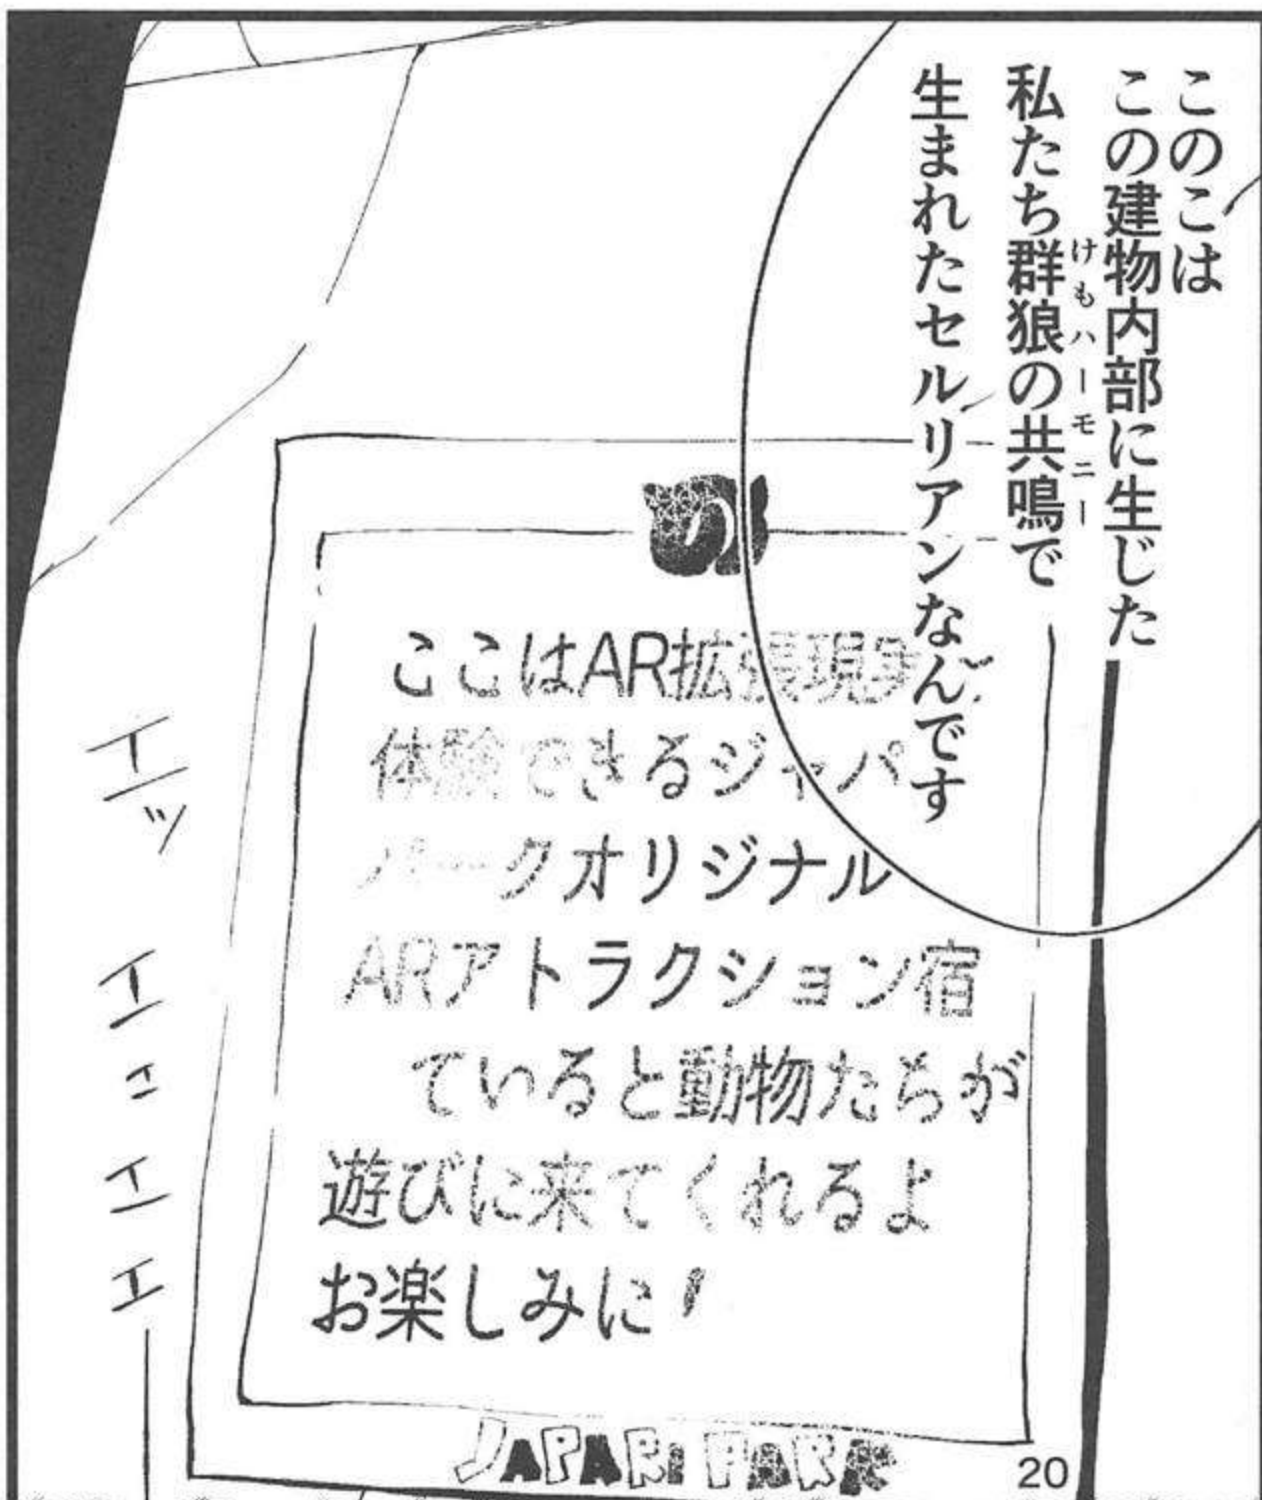 このこは
この建物内部に生じた
私たち群狼の共鳴で
けもハーモニー
生まれたセルリアンなんです
ここはAR拡張現実
体験できるジャパ
パークオリジナル
ARアトラクション宿
ていると動物たちが
遊びに来てくれるよ
お楽しみに!
JAPARI PARK
エッ
エェエエ
20